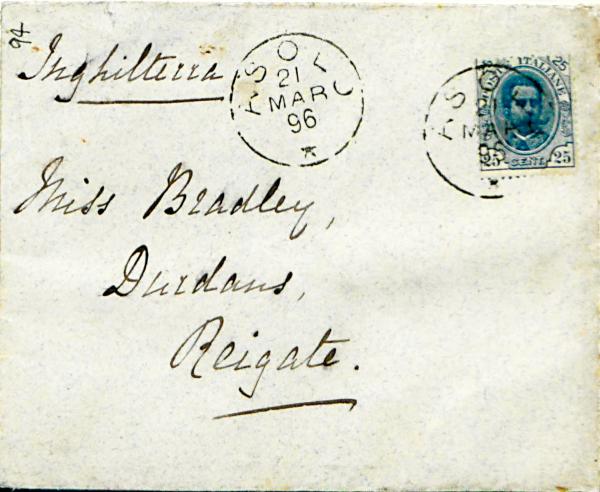 94
Inghilterra
ASOLO
21
MAR
96
ASO
21
MAR
96
25 25
ITALIANE
25 CENT 25
Miss Bradley,
Durdans,
Reigate.